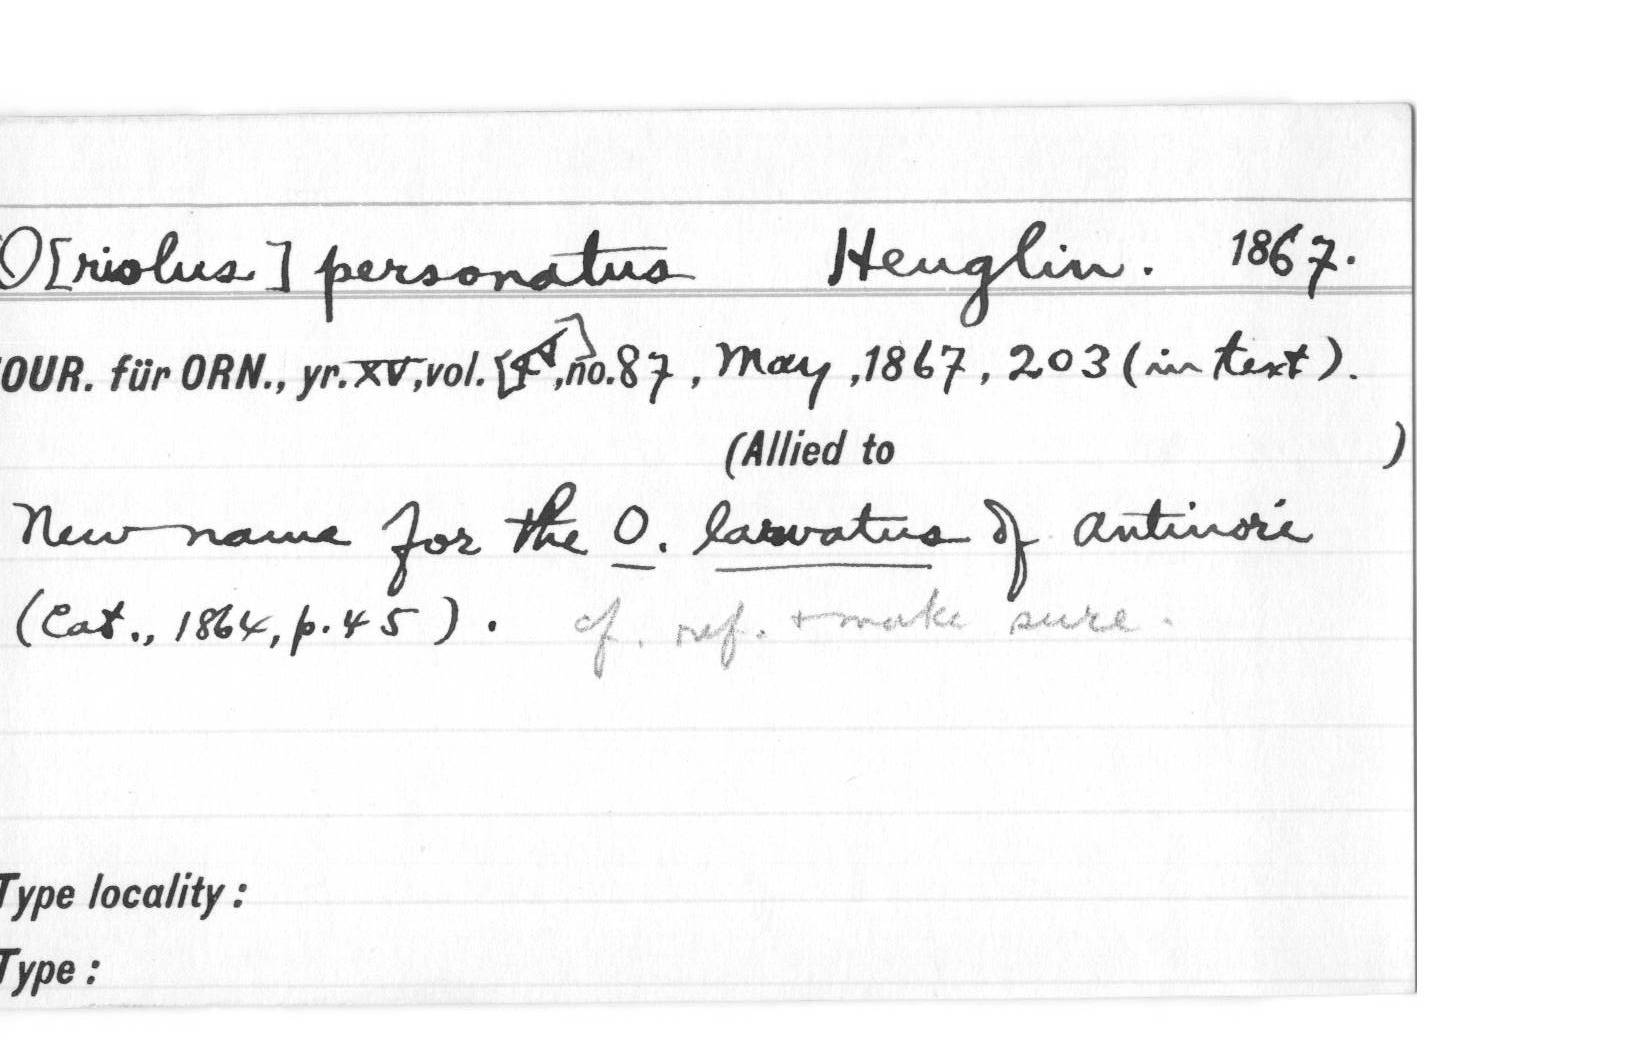 O[riolus] personatus Heuglin. 1867.
OUR. für ORN., yr. XV, vol. , no. 87, May, 1867, 203 (in text).
(Allied to )
New name for the O. larvatus of Antinori
(Cat., 1864, p. 45). cf. ref. + make sure.
Type locality:
Type: